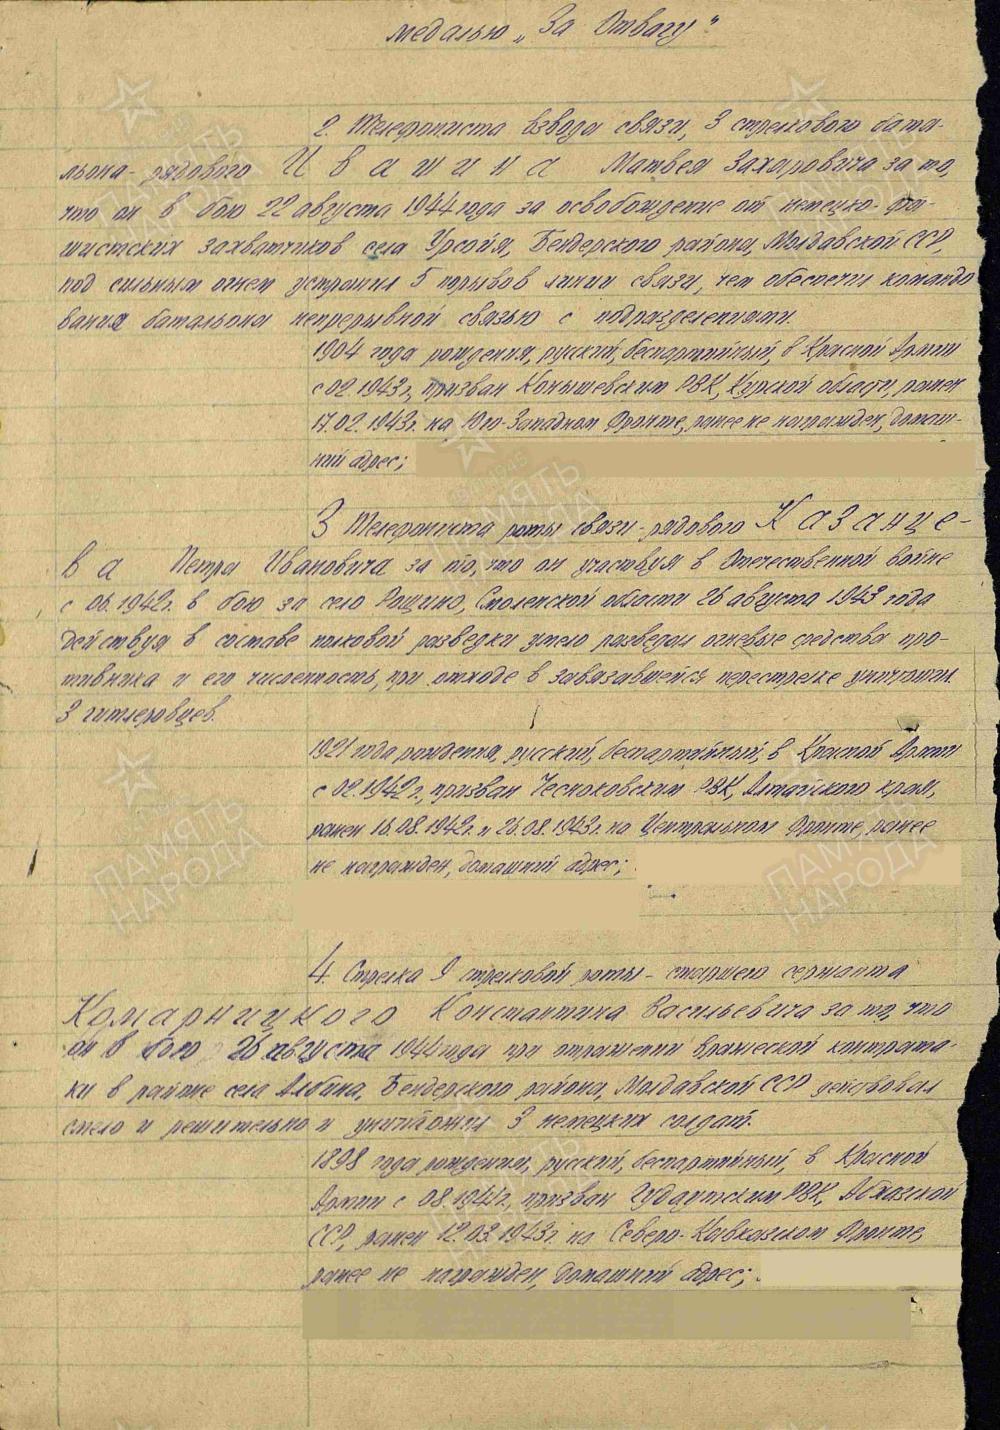 медалью „За Отвагу"
2. Телефониста взвода связи, 3 стрелкового бата-
льона - рядового Ивашина Матвея Захаровича за то,
что он в бою 22 августа 1944 года за освобождение от немецко-фа-
шистских захватчиков села Урсойя, Бендерского района, Молдавской ССР,
под сильным огнем устранил 5 порывов линии связи, чем обеспечил командо
вания батальона непрерывной связью с подразделениями.
1904 года рождения, русский, беспартийный, в Красной Армии
с 02.1943г., призван Конышевским РВК, Курской области, ранен
17.02.1943г. на Юго-Западном Фронте, ранее не награжден, домаш-
ний адрес;
3 Телефониста роты связи - рядового Казанце-
ва Петра Ивановича за то, что он участвуя в Отечественной войне
с 06.1942г. в бою за село Рощино, Смоленской области 26 августа 1943 года
действуя в составе полковой разведки умело разведал огневые средства про-
тивника и его численность, при отходе в завязавшейся перестрелке уничтожил
3 гитлеровцев.
1921 года рождения, русский, беспартийный, в Красной Армии
с 02.1942г., призван Чесноковским РВК, Алтайского края,
ранен 16.08.1942г. и 26.08.1943г. на Центральном Фронте, ранее
не награжден, домашний адрес;
4. Стрелка 9 стрелковой роты - старшего сержанта
Комарницкого Константина Васильевича за то, что
он в бою 26 августа 1944 года при отражении вражеской контрата-
ки в районе села Албина, Бендерского района, Молдавской ССР действовал
смело и решительно и уничтожил 3 немецких солдат.
1898 года рождения, русский, беспартийный, в Красной
Армии с 08.1941г., призван Гудаутским РВК, Абхазской
ССР, ранен 12.03.1943г. на Северо-Кавказском Фронте,
ранее не награжден, домашний адрес;
ПАМЯТЬ
НАРОДА